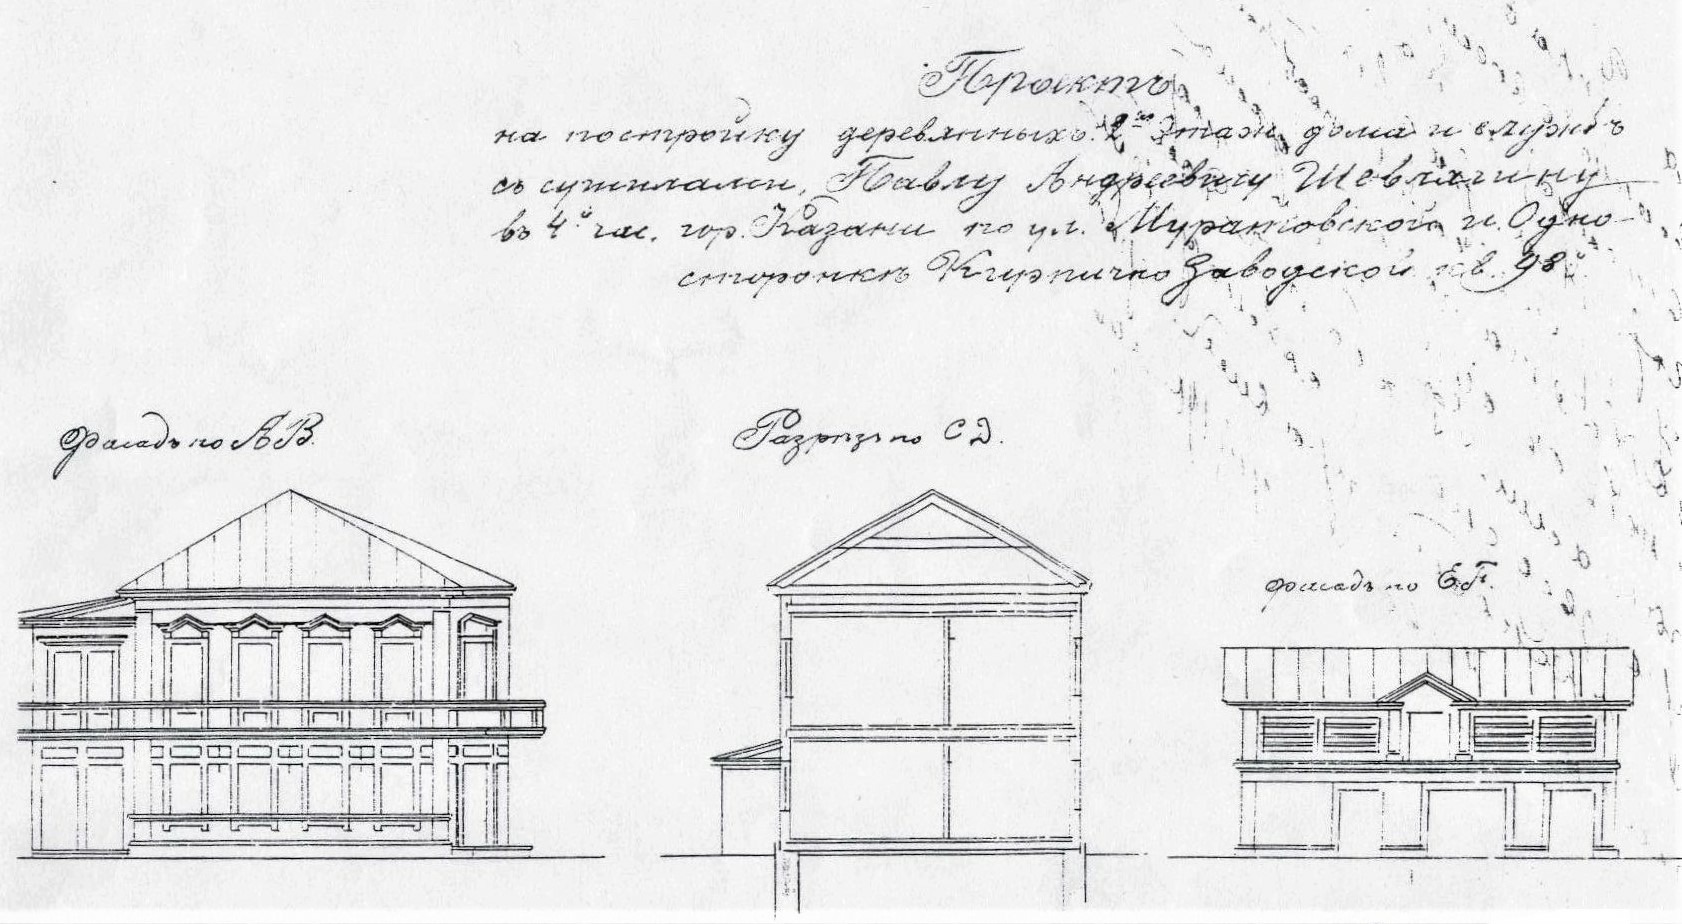 Проектъ
на постройку деревянныхъ 2хъ этажн. дома и службъ
съ сушилами, Павлу Андреевичу Шевлягину
въ 4й час. гор. Казани по ул. Муратовской и Одно-
сторонкѣ Кирпично Заводской кв. 98й
Фасадъ по АВ.
Разрѣзъ по СД.
Фасадъ по ЕГ.